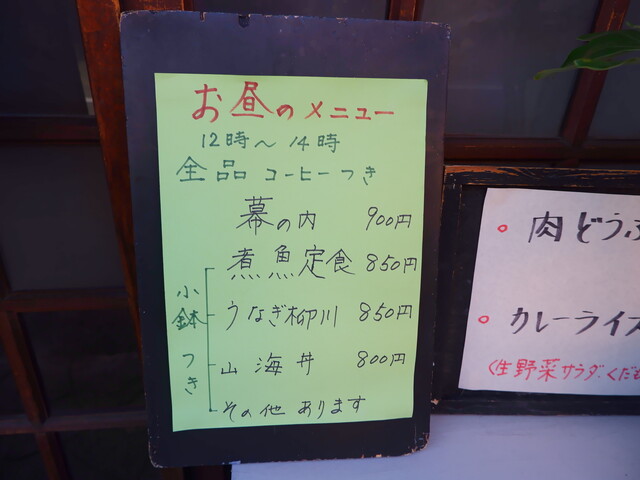 お昼のメニュー
12時～14時
全品 コーヒーつき
幕の内 900円
煮魚定食 850円
うなぎ柳川 850円
山海丼 800円
その他 あります
小鉢つき
○ 肉どうふ
○ カレーライス
(生野菜サラダ・くだも